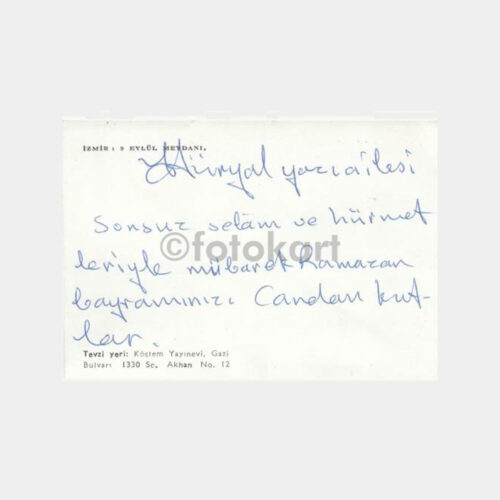 İZMİR : 9 EYLÜL MEYDANI.
Hüryal yazıcı ailesi
Sonsuz selâm ve hürmet
leriyle mübarek Ramazan
bayramınızı Candan kut-
lar.
©fotokart
Tevzi yeri: Köstem Yayınevi, Gazi
Bulvarı 1330 So, Akhan No. 12